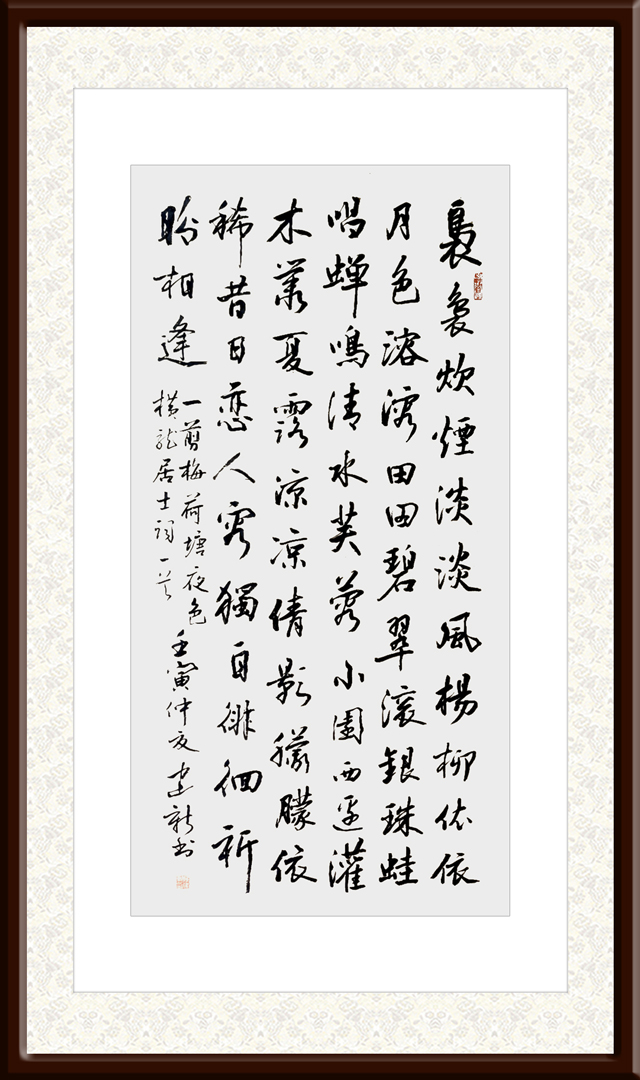 裊袅炊煙淡淡風楊柳依依
月色溶溶田田碧翠滚銀珠蛙
唱蟬鳴清水芙蓉小園西邊灌
木叢夏露涼凉倩影朦朧依
稀昔日戀人容獨自徘徊祈
盼相逢
一剪梅荷塘夜色
橫龍居士詞一首
壬寅仲夏建新书